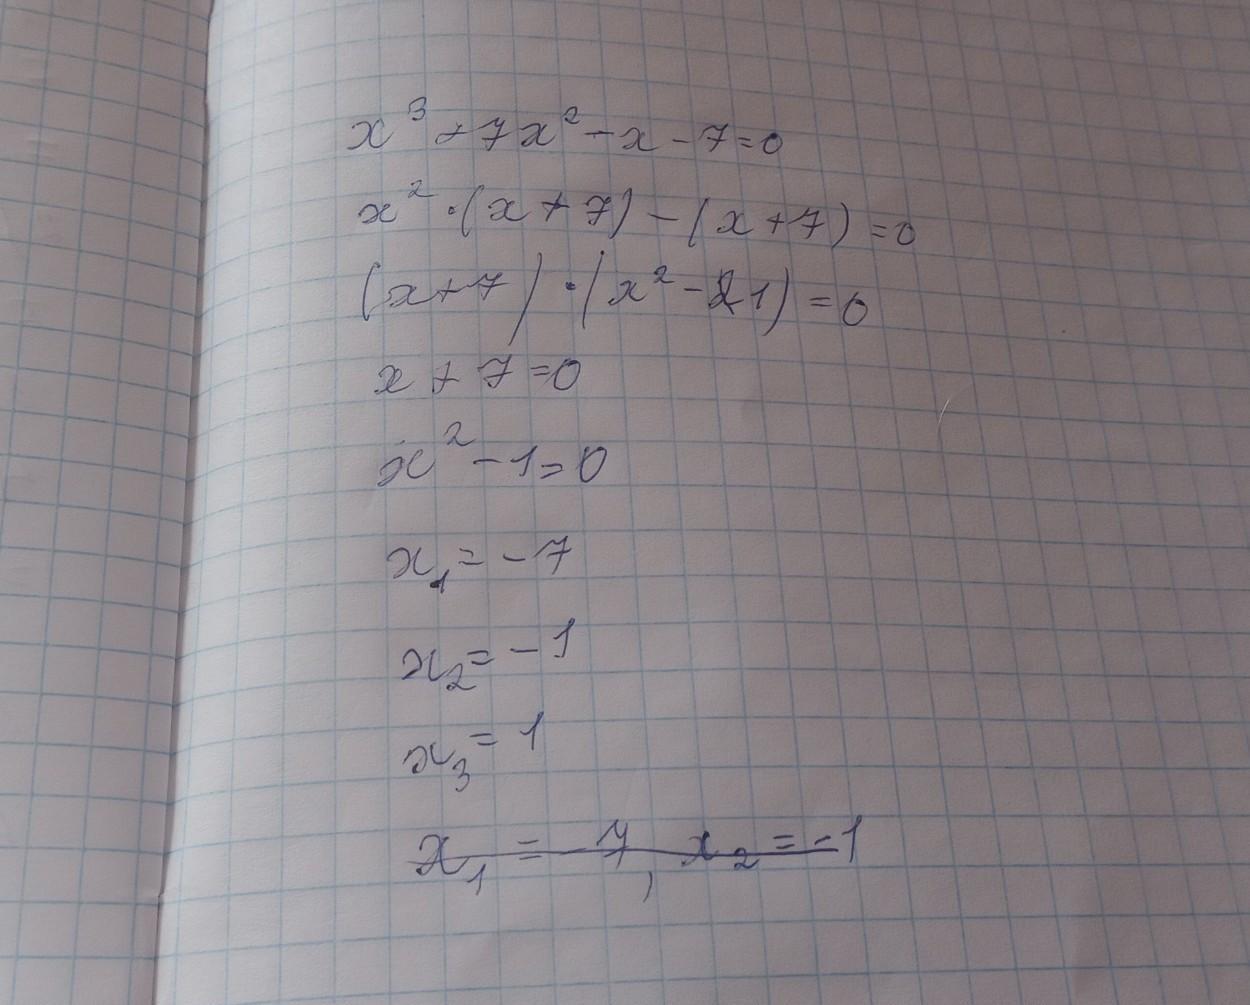 x³ + 7x² - x - 7 = 0
x² · (x + 7) - (x + 7) = 0
(x + 7) · (x² - 1) = 0
x + 7 = 0
x² - 1 = 0
x₁ = - 7
x₂ = - 1
x₃ = 1
x₁ = - 7, x₂ = - 1